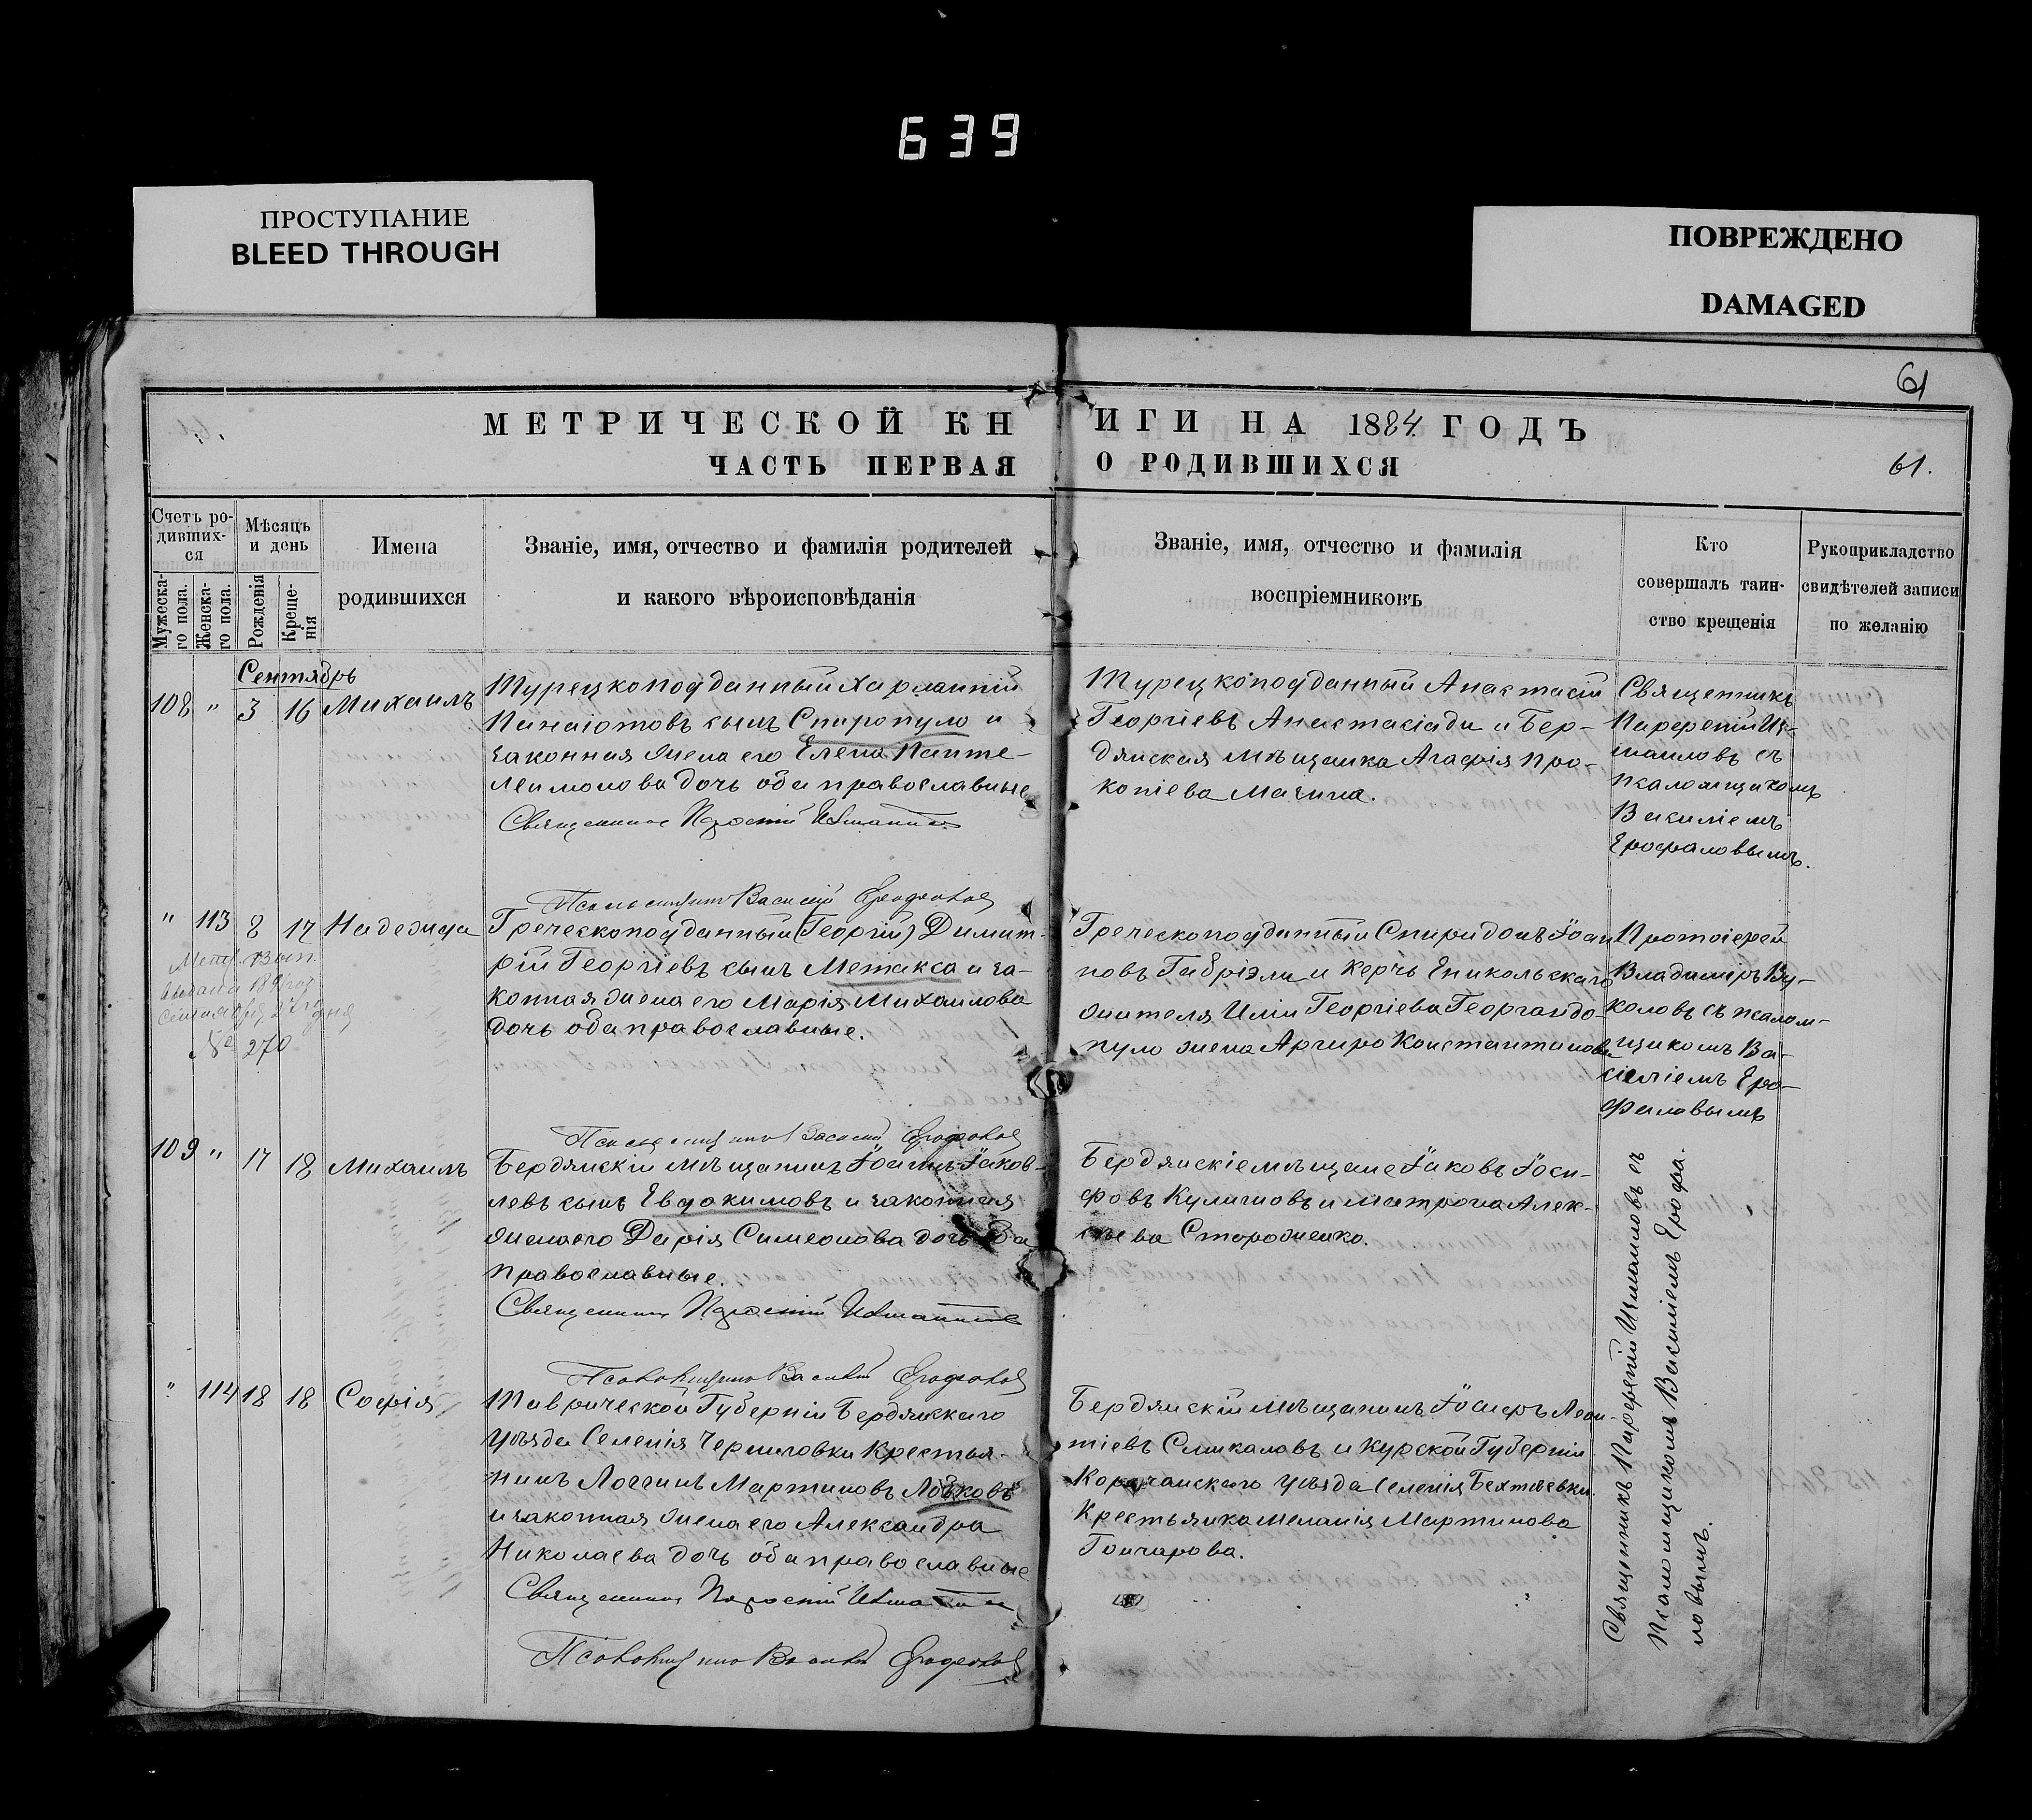 639
ПРОСТУПАНИЕ
BLEED THROUGH
ПОВРЕЖДЕНО
DAMAGED
61
МЕТРИЧЕСКОЙ КН
ИГИ НА 1884 ГОДЪ
ЧАСТЬ ПЕРВАЯ
О РОДИВШИХСЯ
61.
Счетъ ро-
дивших-
ся
Мужеска-
го пола.
Женска-
го пола.
Мѣсяцъ
и день
Рожденія
Креще-
нія
Имена
родившихся
Званіе, имя, отчество и фамилія родителей
и какого вѣроисповѣданія
Званіе, имя, отчество и фамилія
воспріемниковъ
Кто
совершалъ таин-
ство крещенія
Рукоприкладство
свидѣтелей записи
по желанію
Сентябрь
108 " 3 16 Михаилъ
Турецкоподданный Харлампій
Панаіотовъ сынъ Спиропуло и
законная жена его Елена Панте-
леимонова дочь оба православные
Священникъ Парѳеній
Турецкоподданный Анастасій
Георгіевъ Анастасіади и Бер-
дянская мѣщанка Агафія Про-
копіева Мачина.
Священникъ
Парѳеній Из-
маиловъ съ
псаломщикомъ
Василіемъ
Ерофаловымъ.
Псаломщикъ Василій
" 113 8 17 Надежда
Метр. Вып.
выдана
сентября 27го дня
№ 270
Греческоподданный (Георгій) Димит-
рій Георгіевъ сынъ Метакса и за-
конная жена его Марія Михаилова
дочь оба православные.
Греческоподданный Спиридонъ Іоан
новъ Габріэли и Керчь Еникольскаго
жителя Иліи Георгіева Георгандо-
пуло жена Аргиро Константинова
Протоіерей
Владиміръ Ву-
коловъ съ псалом-
щикомъ Ва-
силіемъ Еро-
фаловымъ
Псаломщикъ Василій
109 " 17 18 Михаилъ
Бердянскій мѣщанинъ Іоаннъ Іаков-
левъ сынъ Евдокимовъ и законная
жена его Дарія Симеонова дочь оба
православные.
Священникъ Парѳеній
Бердянскіе мѣщане Іаковъ Іоси-
фовъ Куличновъ и Матрона Алек-
сѣева Стороженко.
Священникъ Парѳеній Измаиловъ съ
Псаломщикомъ Василіемъ Ерофа-
ловымъ.
Псаломщикъ Василій
" 114 18 18 Софія
Таврической Губерніи Бердянскаго
уѣзда Селенія Черниговки Крестья-
нинъ Логгинъ Мартиновъ
и законная жена его Александра
Николаева дочь оба православные
Священникъ Парѳеній
Псаломщикъ Василій
Бердянскій мѣщанинъ Іосифъ Леон-
тіевъ Слюкаловъ и Курской Губерніи
Корочанскаго уѣзда Селенія Бехтеевки
Крестьянка Меланія Мартинова
Гончарова.